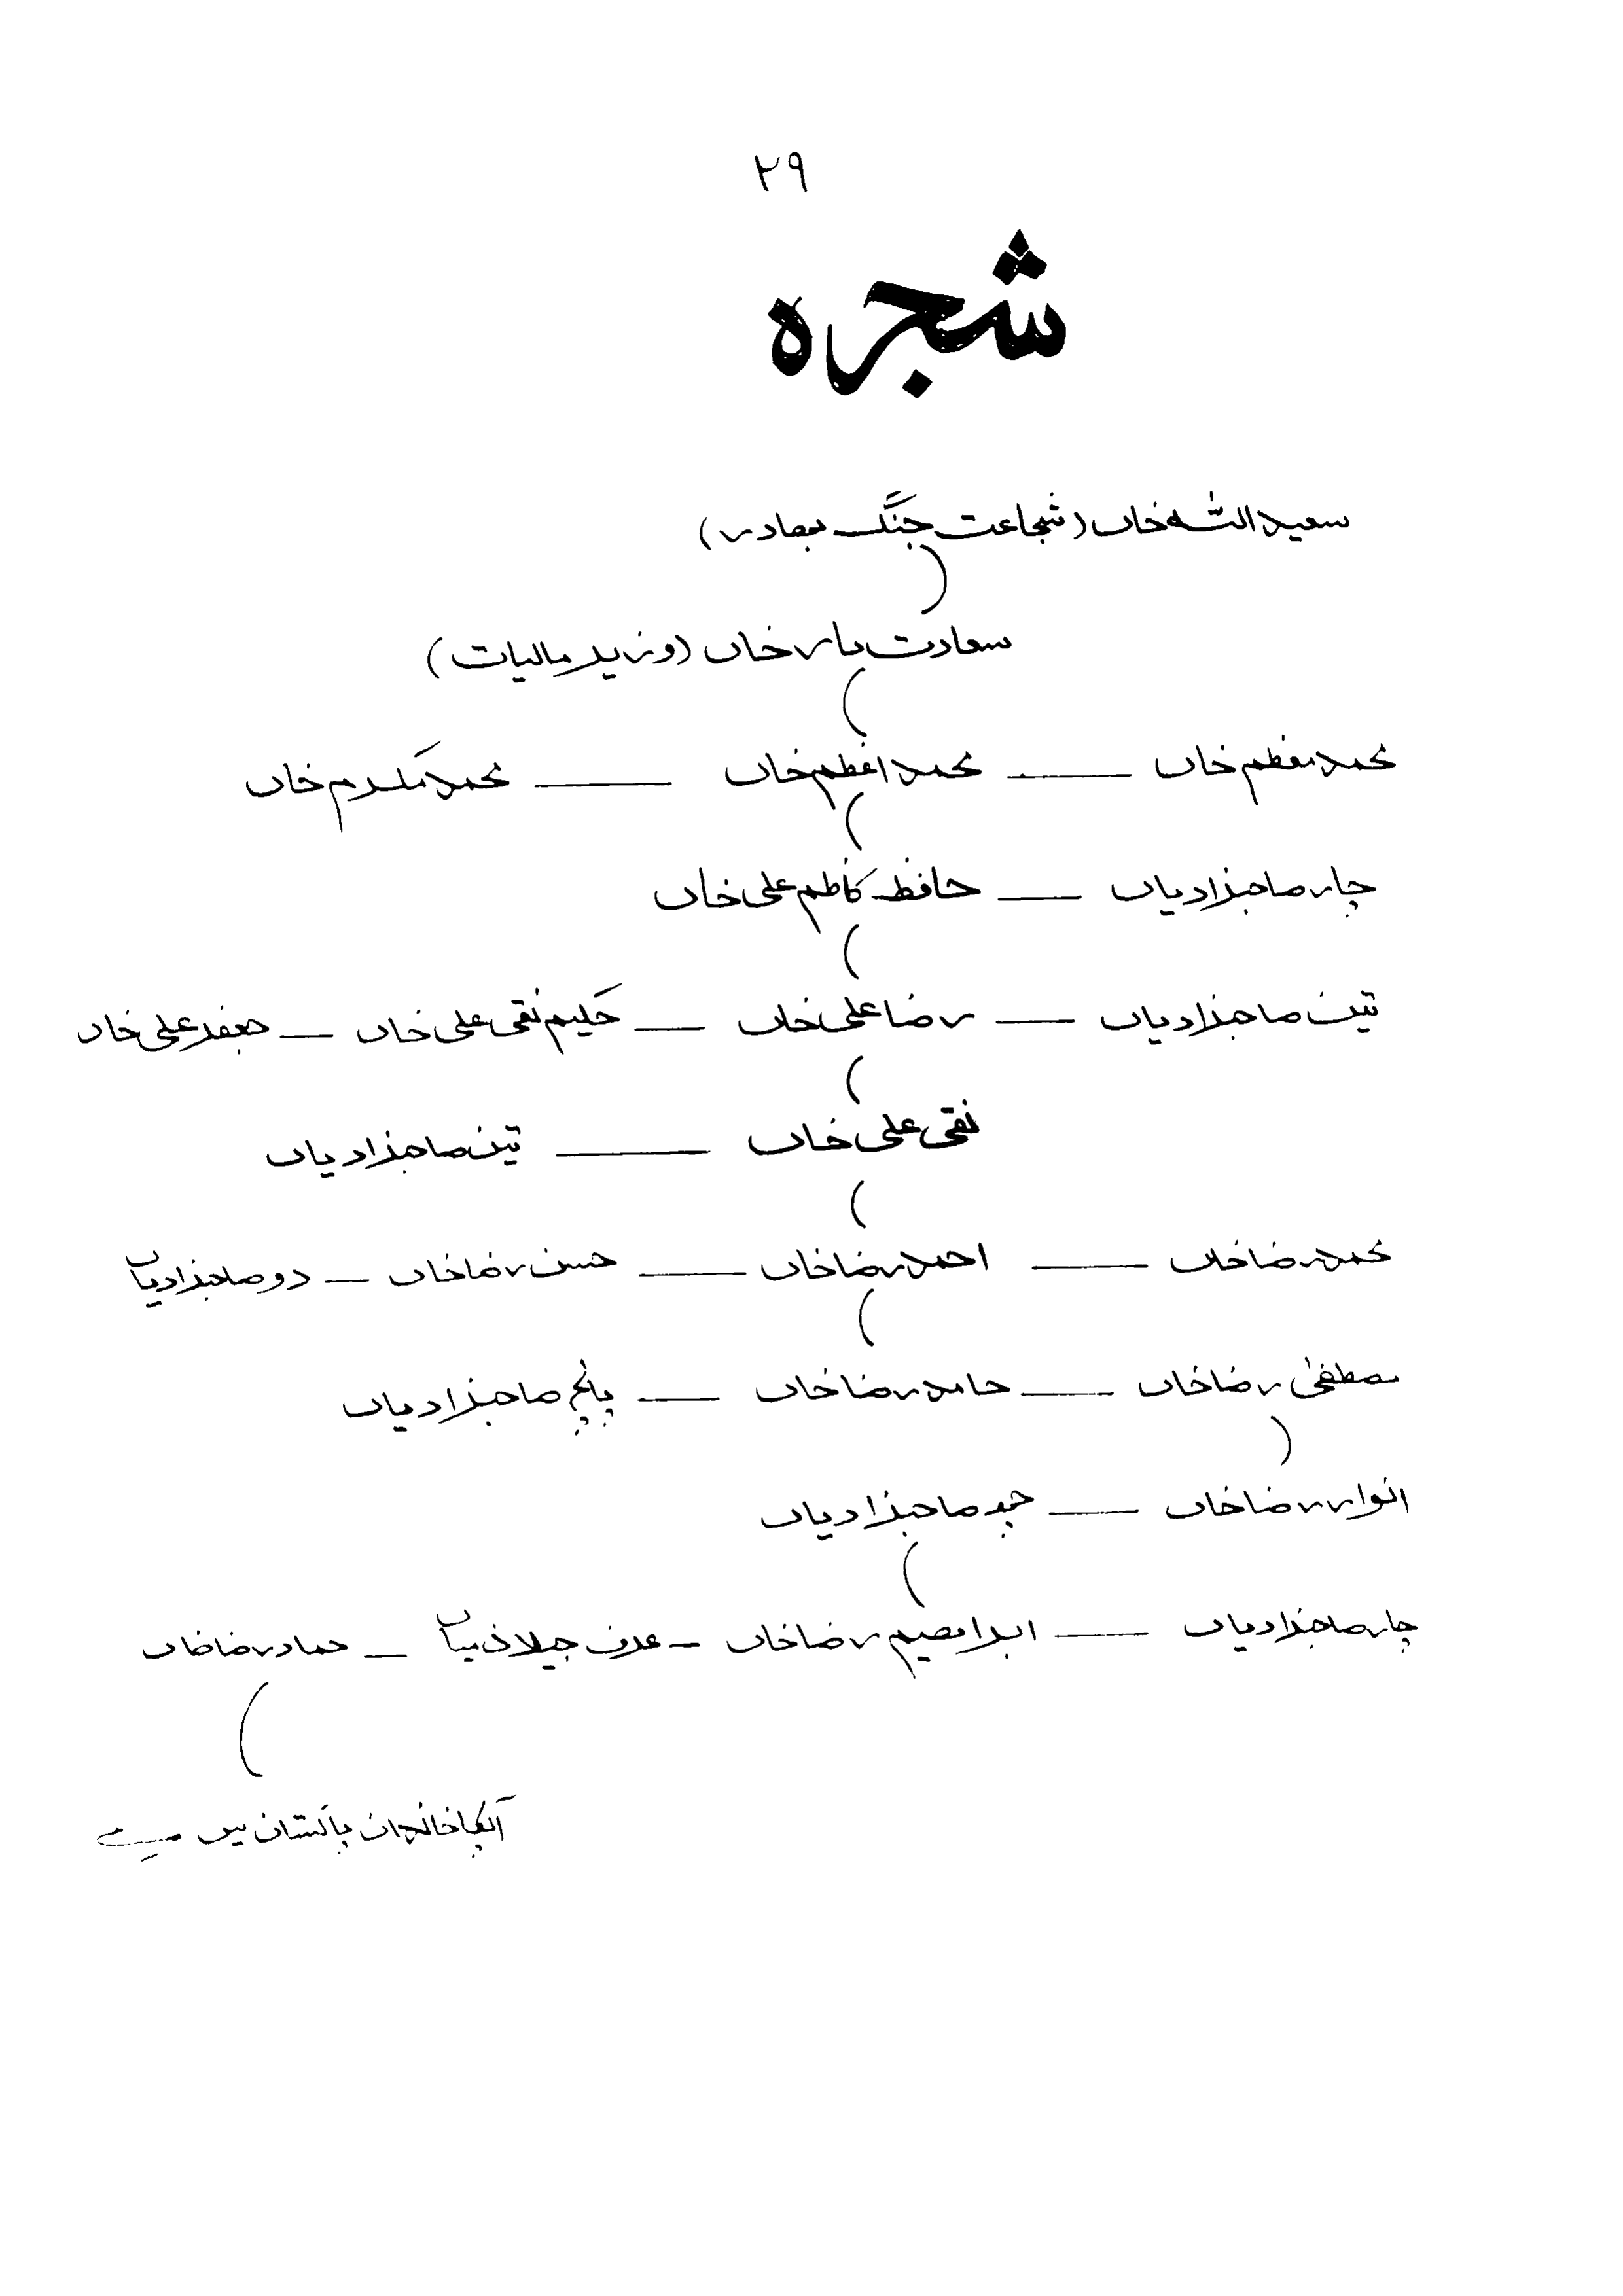 ۲۹
شجرہ
سعید اللہ خاں (شجاعت جنگ بہادر)
سعادت یار خاں (وزیر مالیات)
محمد معظم خاں — محمد اعظم خاں — محمد مکرم خاں
چار صاحبزادیاں — حافظ کاظم علی خاں
تین صاحبزادیاں — رضا علی خاں — حکیم تقی علی خاں — جعفر علی خاں
نقی علی خاں — تین صاحبزادیاں
محمد رضا خاں — احمد رضا خاں — حسن رضا خاں — دو صاحبزادیاں
مصطفیٰ رضا خاں — حامد رضا خاں — پانچ صاحبزادیاں
انوار رضا خاں — چھ صاحبزادیاں
چار صاحبزادیاں — ابراھیم رضا خاں - عرف جیلانی میاں — حماد رضا خاں
آپکا خاندان پاکستان میں ہے